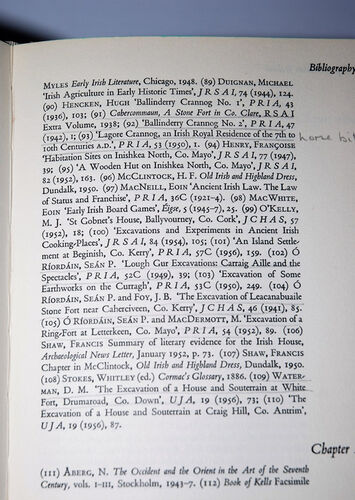 Bibliography
MYLES Early Irish Literature, Chicago, 1948. (89) DUIGNAN, MICHAEL
'Irish Agriculture in Early Historic Times', J R S A I, 74 (1944), 124.
(90) HENCKEN, HUGH 'Ballinderry Crannog No. 1', P R I A, 43
(1936), 103; (91) Cahercommaun, A Stone Fort in Co. Clare, R S A I
Extra Volume, 1938; (92) 'Ballinderry Crannog No. 2', P R I A, 47
(1942), 1; (93) 'Lagore Crannog, an Irish Royal Residence of the 7th to
10th Centuries A.D.', P R I A, 53 (1950), 1. (94) HENRY, FRANÇOISE
'Habitation Sites on Inishkea North, Co. Mayo', J R S A I, 77 (1947),
39; (95) 'A Wooden Hut on Inishkea North, Co. Mayo', J R S A I,
82 (1952), 163. (96) MCCLINTOCK, H. F. Old Irish and Highland Dress,
Dundalk, 1950. (97) MACNEILL, EOIN 'Ancient Irish Law. The Law
of Status and Franchise', P R I A, 36C (1921–4). (98) MACWHITE,
EOIN 'Early Irish Board Games', Éigse, 5 (1945–7), 25. (99) O'KELLY,
M. J. 'St Gobnet's House, Ballyvourney, Co. Cork', J C H A S, 57
(1952), 18; (100) 'Excavations and Experiments in Ancient Irish
Cooking-Places', J R S A I, 84 (1954), 105; (101) 'An Island Settle-
ment at Beginish, Co. Kerry', P R I A, 57C (1956), 159. (102) Ó
RÍORDÁIN, SEÁN P. 'Lough Gur Excavations: Carraig Aille and the
Spectacles', P R I A, 52C (1949), 39; (103) 'Excavation of Some
Earthworks on the Curragh', P R I A, 53C (1950), 249. (104) Ó
RÍORDÁIN, SEÁN P. and FOY, J. B. 'The Excavation of Leacanabuaile
Stone Fort near Caherciveen, Co. Kerry', J C H A S, 46 (1941), 85.
(105) Ó RÍORDÁIN, SEÁN P. and MACDERMOTT, M. 'Excavation of a
Ring-Fort at Letterkeen, Co. Mayo', P R I A, 54 (1952), 89. (106)
SHAW, FRANCIS Summary of literary evidence for the Irish House,
Archaeological News Letter, January 1952, p. 73. (107) SHAW, FRANCIS
Chapter in McClintock, Old Irish and Highland Dress, Dundalk, 1950.
(108) STOKES, WHITLEY (ed.) Cormac's Glossary, 1886. (109) WATER-
MAN, D. M. 'The Excavation of a House and Souterrain at White
Fort, Drumaroad, Co. Down', U J A, 19 (1956), 73; (110) 'The
Excavation of a House and Souterrain at Craig Hill, Co. Antrim',
U J A, 19 (1956), 87.
Chapter
(111) ÅBERG, N. The Occident and the Orient in the Art of the Seventh
Century, vols. I–III, Stockholm, 1943–7. (112) Book of Kells Facsimile